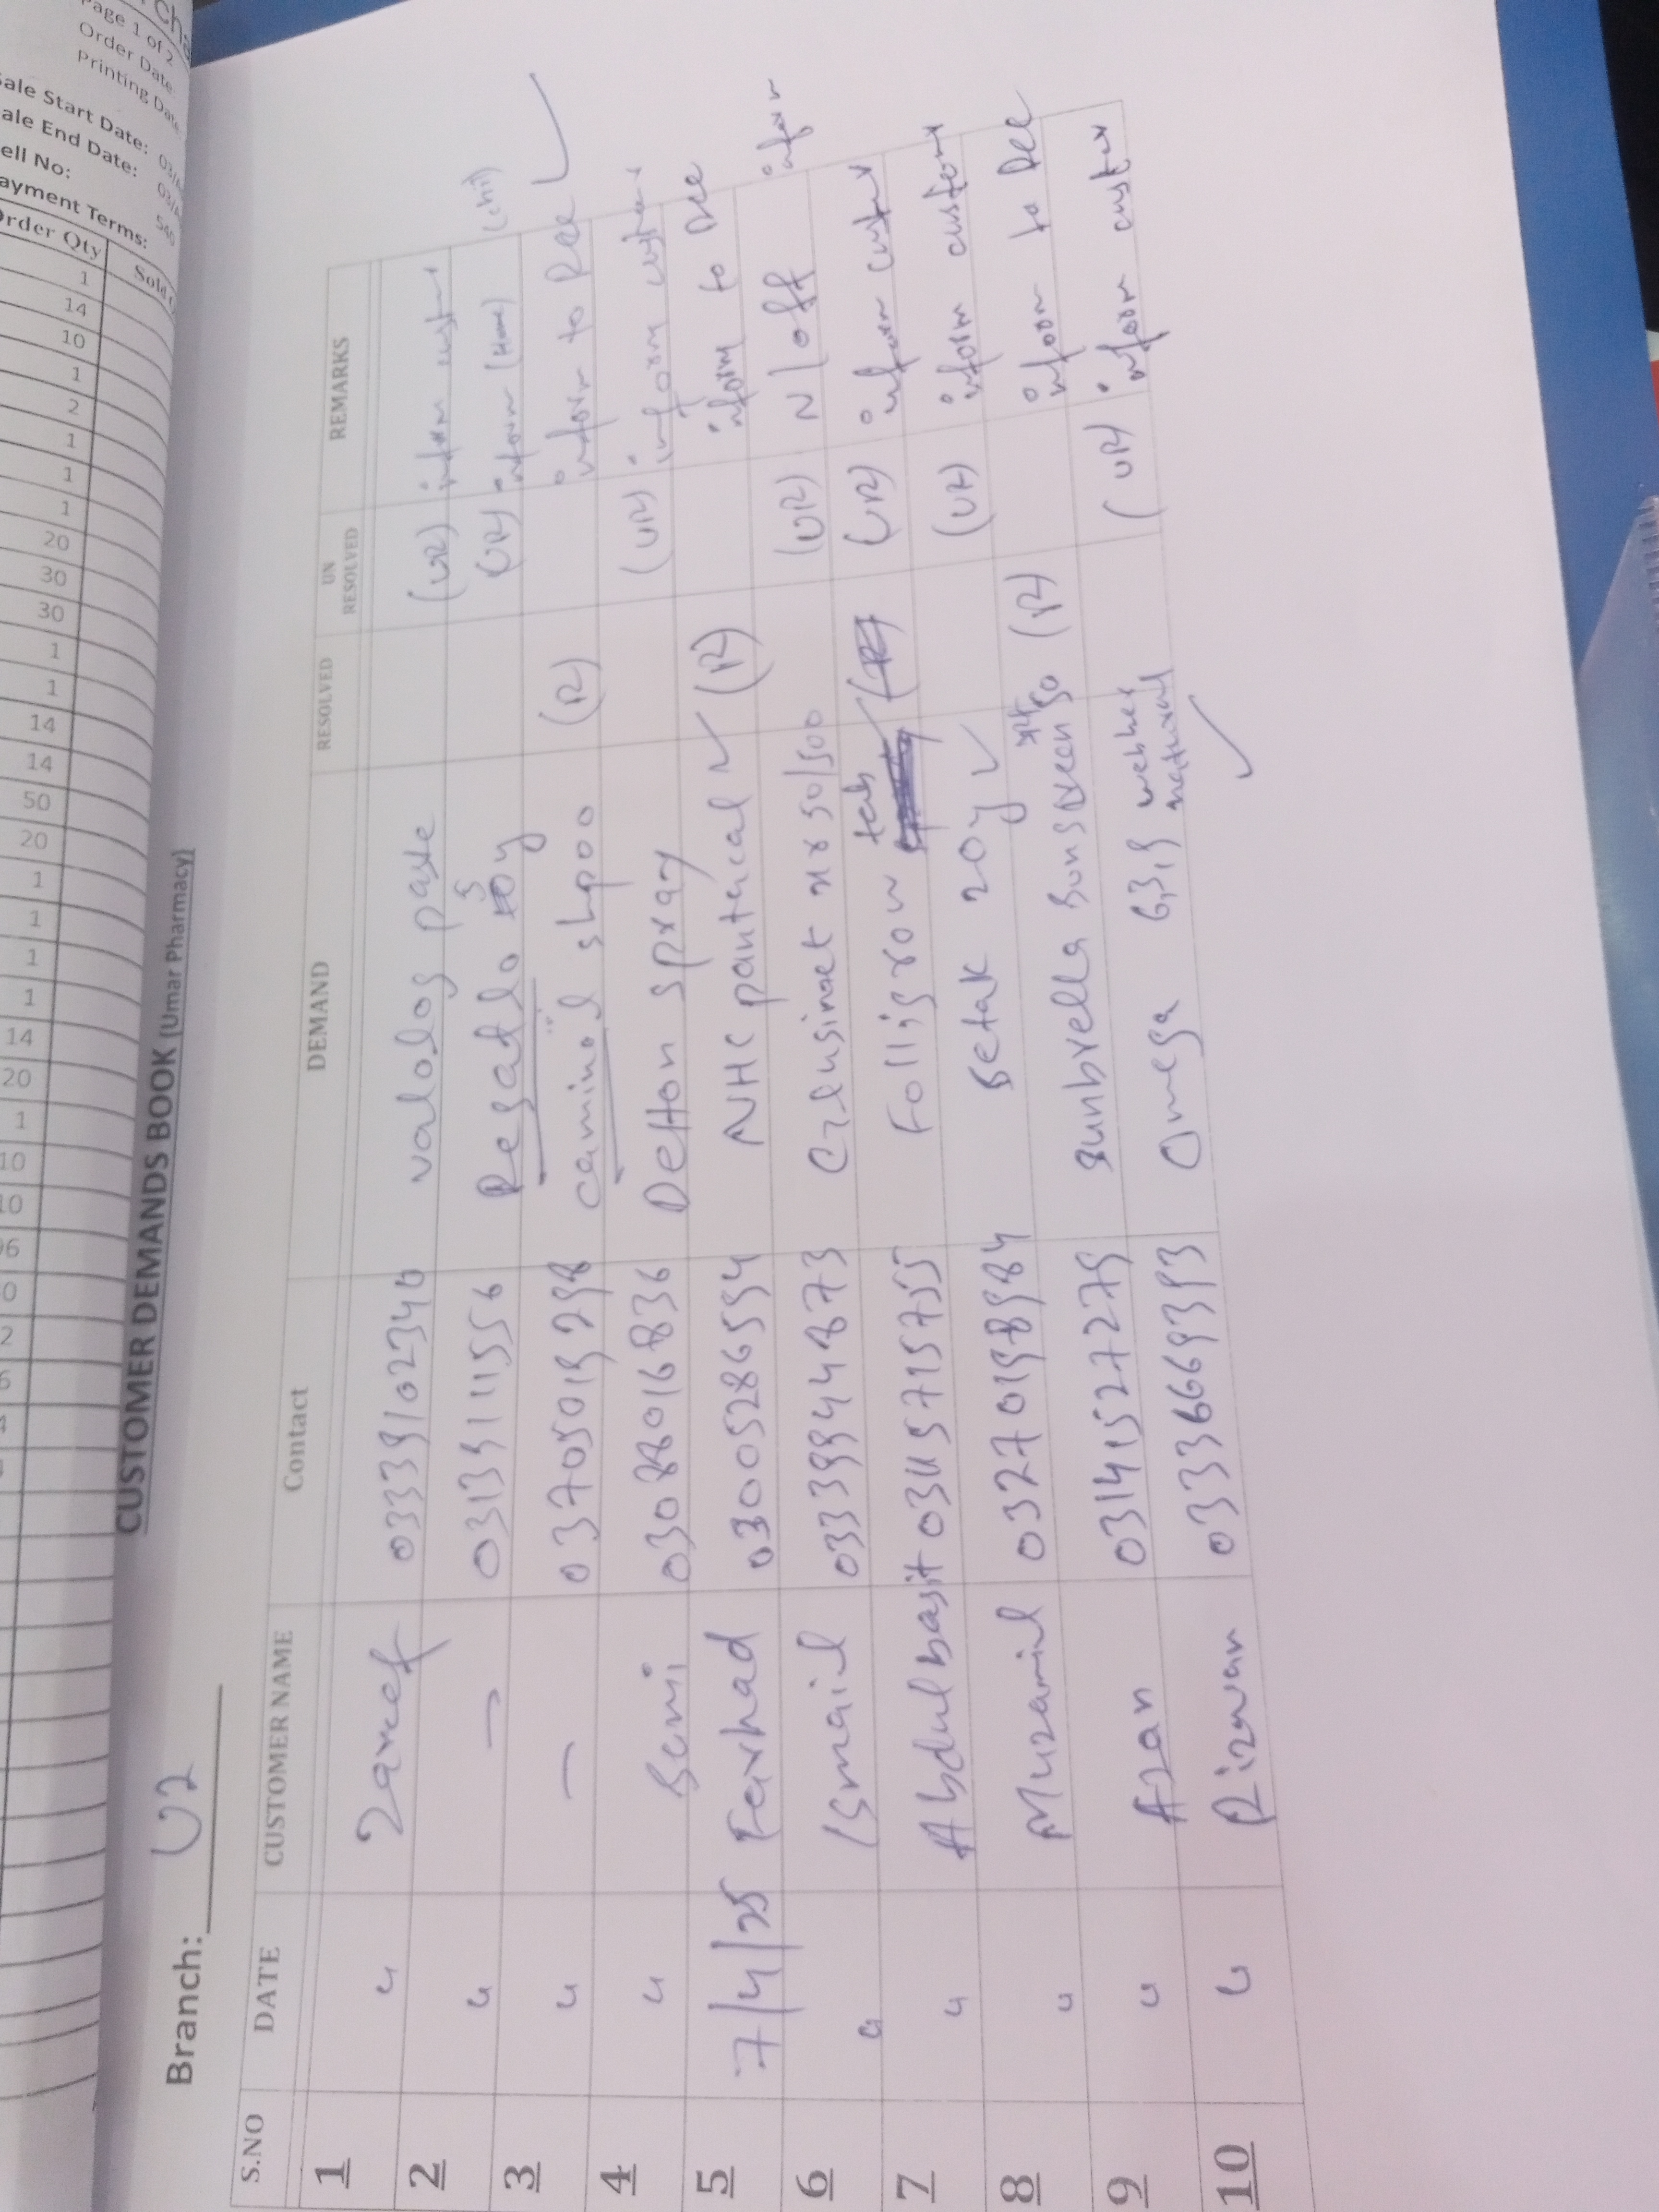 Page 1 of 2
Order Date
Printing Date
Sale Start Date: 03/
Sale End Date: 03/
Cell No: 540
Payment Terms:
Order Qty Sold
1
14
10
1
2
1
1
1
20
30
30
1
1
14
14
50
20
1
1
1
1
14
20
1
10
10
CUSTOMER DEMANDS BOOK (Umar Pharmacy)
Branch: U2
S.NO DATE CUSTOMER NAME Contact DEMAND RESOLVED UN RESOLVED REMARKS
1 " Zareef 03339102346 valolog paste (UR) inform customer
2 " — 03139111556 Regatlo 5 oy (UR) inform (Home)
3 " — 03705019298 caminol shpoo (R) inform to Ree ✓
4 " Semi 03088016836 Detton spray (UR) inform customer
5 7/4/25 Farhad 03005286594 NHC pantercal ✓ (R) inform to Dee
6 " Ismail 03339944873 xr 50/500 (UR) N/off inform
7 " Abdulbasit 03459715755 Folligrow tab (UR) inform customer
8 " Muzamil 03270198984 Betak 20y ✓ (UR) inform customer
9 " Azan 03141527279 Sunbrella Sunscreen 50 (R) inform to Dee
10 " Rizwan 03336669393 Omega 6,3,9 webher natural ✓ (UR) inform customer